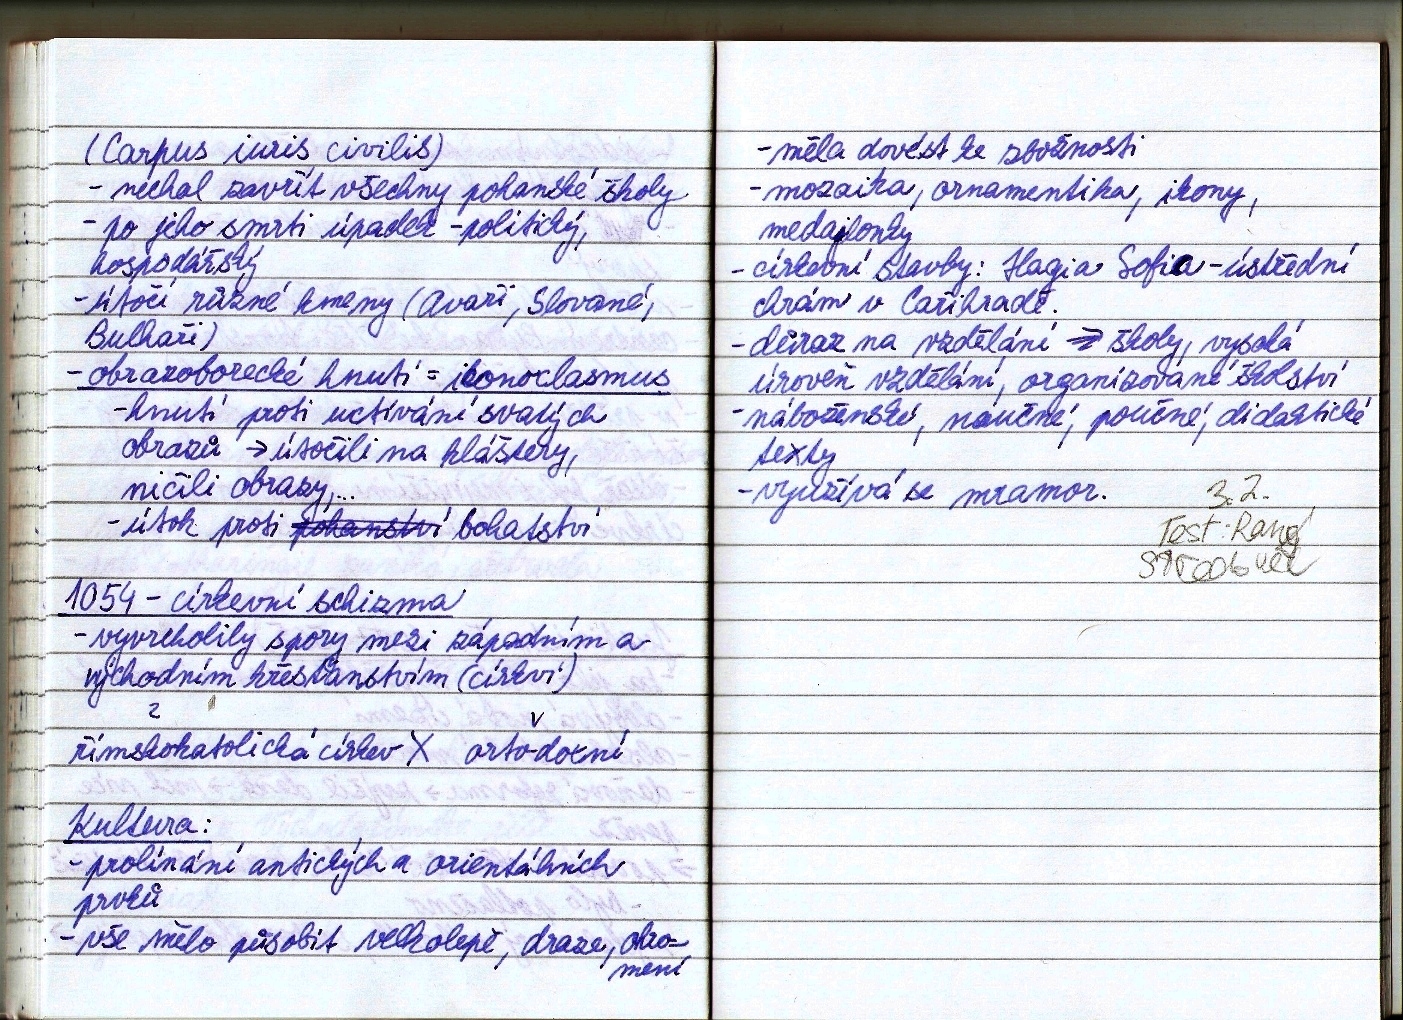 (Carpus iuris civilis)
- nechal zavřít všechny pohanské školy
- po jeho smrti úpadek - politický,
hospodářský
- útočí různé kmeny (Avaři, Slované,
Bulhaři)
- obrazoborecké hnutí = iconoclasmus
- hnutí proti uctívání svatých
obrazů → útočili na kláštery,
ničili obrazy,...
- útok proti pohanství bohatství
1054 - církevní schizma
- vyvrcholily spory mezi západním a
východním křesťanstvím (církví)
z v
římskokatolická církev X ortodoxní
Kultura:
- prolínání antických a orientálních
prvků
- vše mělo působit velkolepě, draze, ohro-
mení
- měla dovést ke zbožnosti
- mozaika, ornamentika, ikony,
medajlonky
- církevní stavby: Hagia Sofia - ústřední
chrám v Cařihradě.
- důraz na vzdělání ⇒ školy, vysoká
úroveň vzdělání, organizované školství
- náboženské, naučné, poučné, didaktické
texty
- využívá se mramor.
3.2.
Test: Raný
středověk